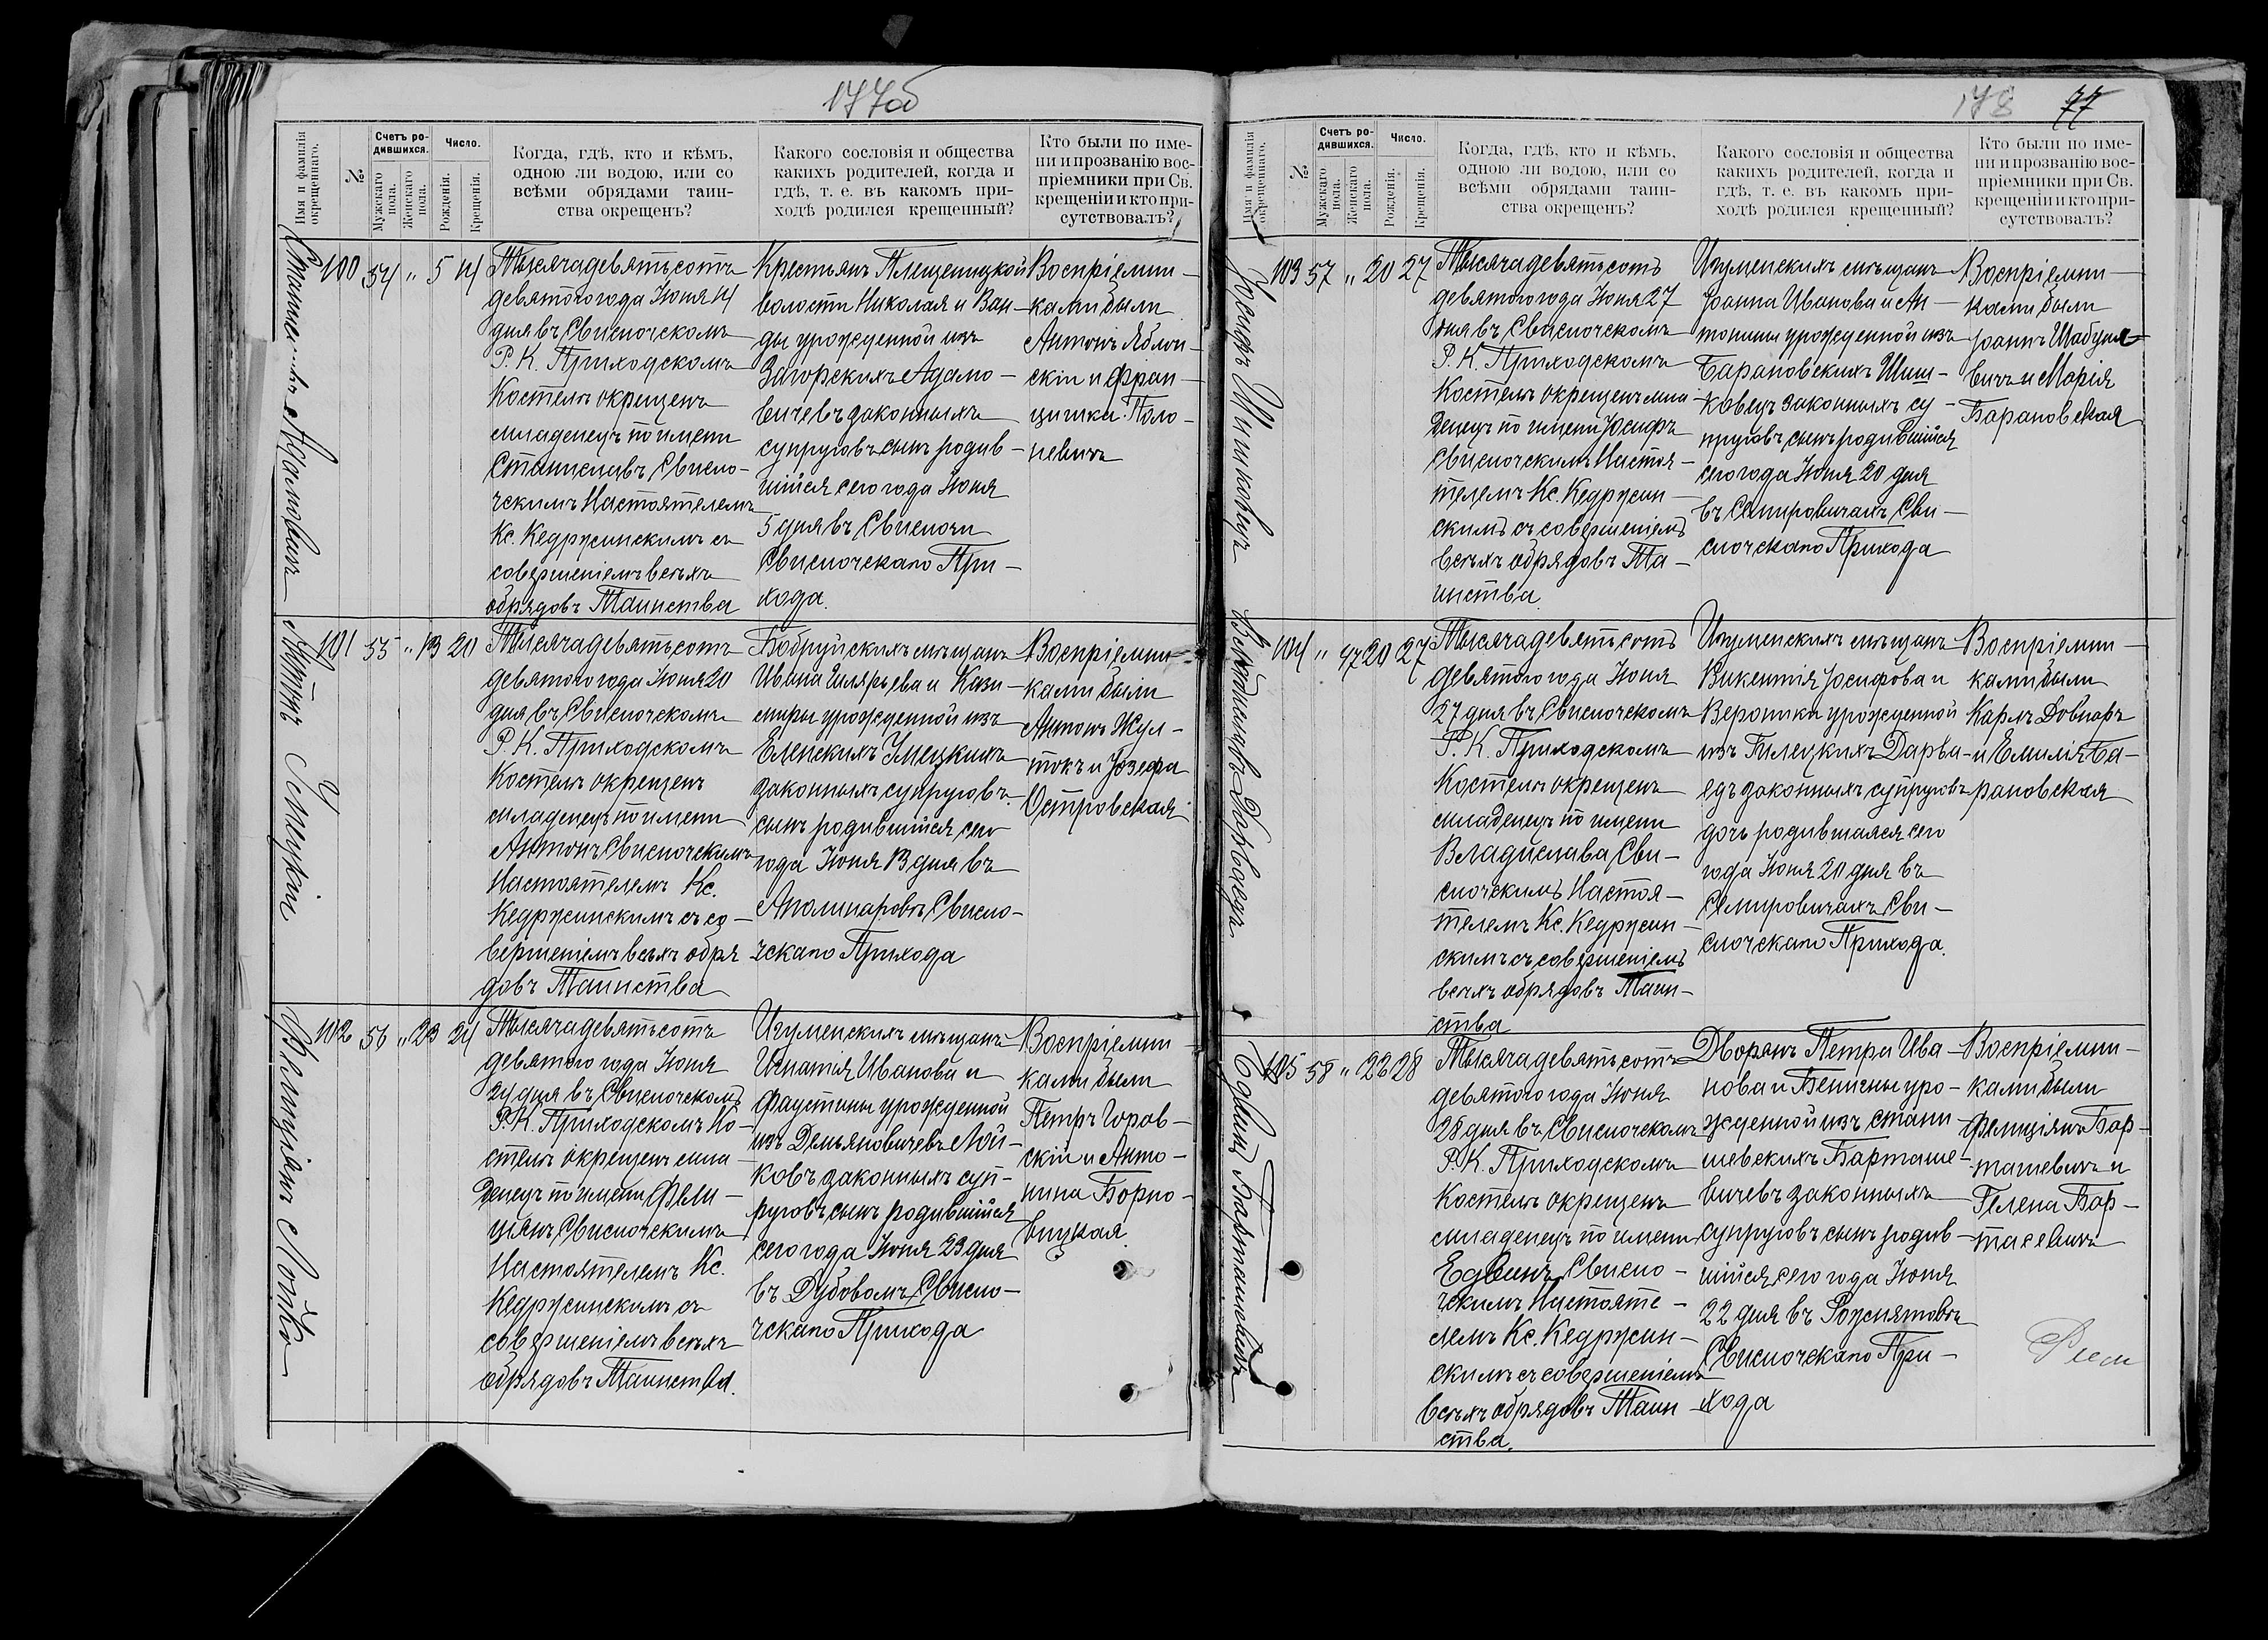 177об
Имя и фамилія окрещеннаго.
№
Счетъ родившихся.
Мужскаго пола.
Женскаго пола.
Число.
Рожденія.
Крещенія.
Когда, гдѣ, кто и кѣмъ,
одною ли водою, или со
всѣми обрядами таин-
ства окрещенъ?
Какого сословія и общества
какихъ родителей, когда и
гдѣ, т. е. въ какомъ при-
ходѣ родился крещенный?
Кто были по име-
ни и прозванію вос-
пріемники при Св.
крещеніи и кто при-
сутствовалъ?
Станиславъ Адамовичъ
100 54 „ 5 14
Тысяча девятьсотъ
девятого года Іюня 14
дня въ Свислочскомъ
Р. К. Приходскомъ
Костелѣ окрещенъ
младенецъ по имени
Станиславъ Свисло-
чскимъ Настоятелемъ
Кс. Кедржинскимъ съ
совершеніемъ всѣхъ
обрядовъ Таинства
Крестьянъ Плещеницкой
волости Николая и Ван-
ды урожденной изъ
Загорскихъ Адамо-
вичевъ законныхъ
супруговъ сынъ родив-
шійся сего года Іюня
5 дня въ Свислочи
Свислочскаго При-
хода.
Воспріемни-
ками были
Антонъ Яблон-
скій и Фран-
цишка Поло-
невичъ
Антонъ Умецкій
101 55 „ 13 20
Тысяча девятьсотъ
девятого года Іюня 20
дня въ Свислочскомъ
Р. К. Приходскомъ
Костелѣ окрещенъ
младенецъ по имени
Антонъ Свислочскимъ
Настоятелемъ Кс.
Кедржинскимъ съ со-
вершеніемъ всѣхъ обря
довъ Таинства
Бобруйскихъ мѣщанъ
Ивана Гилярьева и Кази-
миры урожденной изъ
Еленскихъ Умецкихъ
законныхъ супруговъ
сынъ родившійся сего
года Іюня 13 дня въ
Аполинаровѣ Свисло-
чскаго Прихода
Воспріемни-
ками были
Антонъ Жул-
токъ и Іозефа
Островская
Фелиціянъ Лойко
102 56 „ 23 24
Тысяча девятьсотъ
девятого года Іюня
24 дня въ Свислочскомъ
Р. К. Приходскомъ Ко-
стелѣ окрещенъ мла-
денецъ по имени Фели-
ціянъ Свислочскимъ
Настоятелемъ Кс.
Кедржинскимъ съ
совершеніемъ всѣхъ
обрядовъ Таинства.
Игуменскихъ мѣщанъ
Игнатія Иванова и
Фаустины урожденной
изъ Демьяновичевъ Лой-
ковъ законныхъ суп-
руговъ сынъ родившійся
сего года Іюня 23 дня
въ Дубовомъ Свисло-
чскаго Прихода
Воспріемни-
ками были
Петръ Горов-
скій и Анто-
нина
178 77
Имя и фамилія окрещеннаго.
№
Счетъ родившихся.
Мужскаго пола.
Женскаго пола.
Число.
Рожденія.
Крещенія.
Когда, гдѣ, кто и кѣмъ,
одною ли водою, или со
всѣми обрядами таин-
ства окрещенъ?
Какого сословія и общества
какихъ родителей, когда и
гдѣ, т. е. въ какомъ при-
ходѣ родился крещенный?
Кто были по име-
ни и прозванію вос-
пріемники при Св.
крещеніи и кто при-
сутствовалъ?
Іосифъ Шишковецъ
103 57 „ 20 27
Тысяча девятьсотъ
девятого года Іюня 27
дня въ Свислочскомъ
Р. К. Приходскомъ
Костелѣ окрещенъ мла-
денецъ по имени Іосифъ
Свислочскимъ Настоя-
телемъ Кс. Кедржин-
скимъ съ совершеніемъ
всѣхъ обрядовъ Та-
инства.
Игуменскихъ мѣщанъ
Іоанна Иванова и Ан-
тонины урожденной изъ
Барановскихъ Шиш-
ковецъ законныхъ су-
пруговъ, сынъ родившійся
сего года Іюня 20 дня
въ Селмировичахъ Сви-
слочскаго Прихода
Воспріемни-
ками были
Іоаннъ Шабуня-
вичъ и Марія
Барановская
Владислава Дарвоѣдъ
104 „ 47 20 27
Тысяча девятьсотъ
девятого года Іюня
27 дня въ Свислочскомъ
Р. К. Приходскомъ
Костелѣ окрещенъ
младенецъ по имени
Владислава Сви-
слочскимъ Настоя-
телемъ Кс. Кедржин-
скимъ съ совершеніемъ
всѣхъ обрядовъ Таин-
ства
Игуменскихъ мѣщанъ
Викентія Іосифова и
Вероники урожденной
изъ Гилецкихъ Дарва-
едъ законныхъ супруговъ
дочь родившаяся сего
года Іюня 20 дня въ
Селмировичахъ Сви-
слочскаго Прихода.
Воспріемни-
ками были
Карлъ Довнаръ
и Емилія Ба-
рановская
Едвинъ Барташевичъ
105 58 „ 22 28
Тысяча девятьсотъ
девятого года Іюня
28 дня въ Свислочскомъ
Р. К. Приходскомъ
Костелѣ окрещенъ
младенецъ по имени
Едвинъ Свисло-
чскимъ Настояте-
лемъ Кс. Кедржин-
скимъ съ совершеніемъ
всѣхъ обрядовъ Таин-
ства.
Дворянъ Петра Ива-
нова и Бенигны уро-
жденной изъ Стани-
шевскихъ Барташе-
вичевъ законныхъ
супруговъ сынъ родив-
шійся сего года Іюня
22 дня въ Рожнятовѣ
Свислочскаго При-
хода
Воспріемни-
ками были
Фелиціянъ Бар-
ташевичъ и
Гелена Бар-
тасевичъ